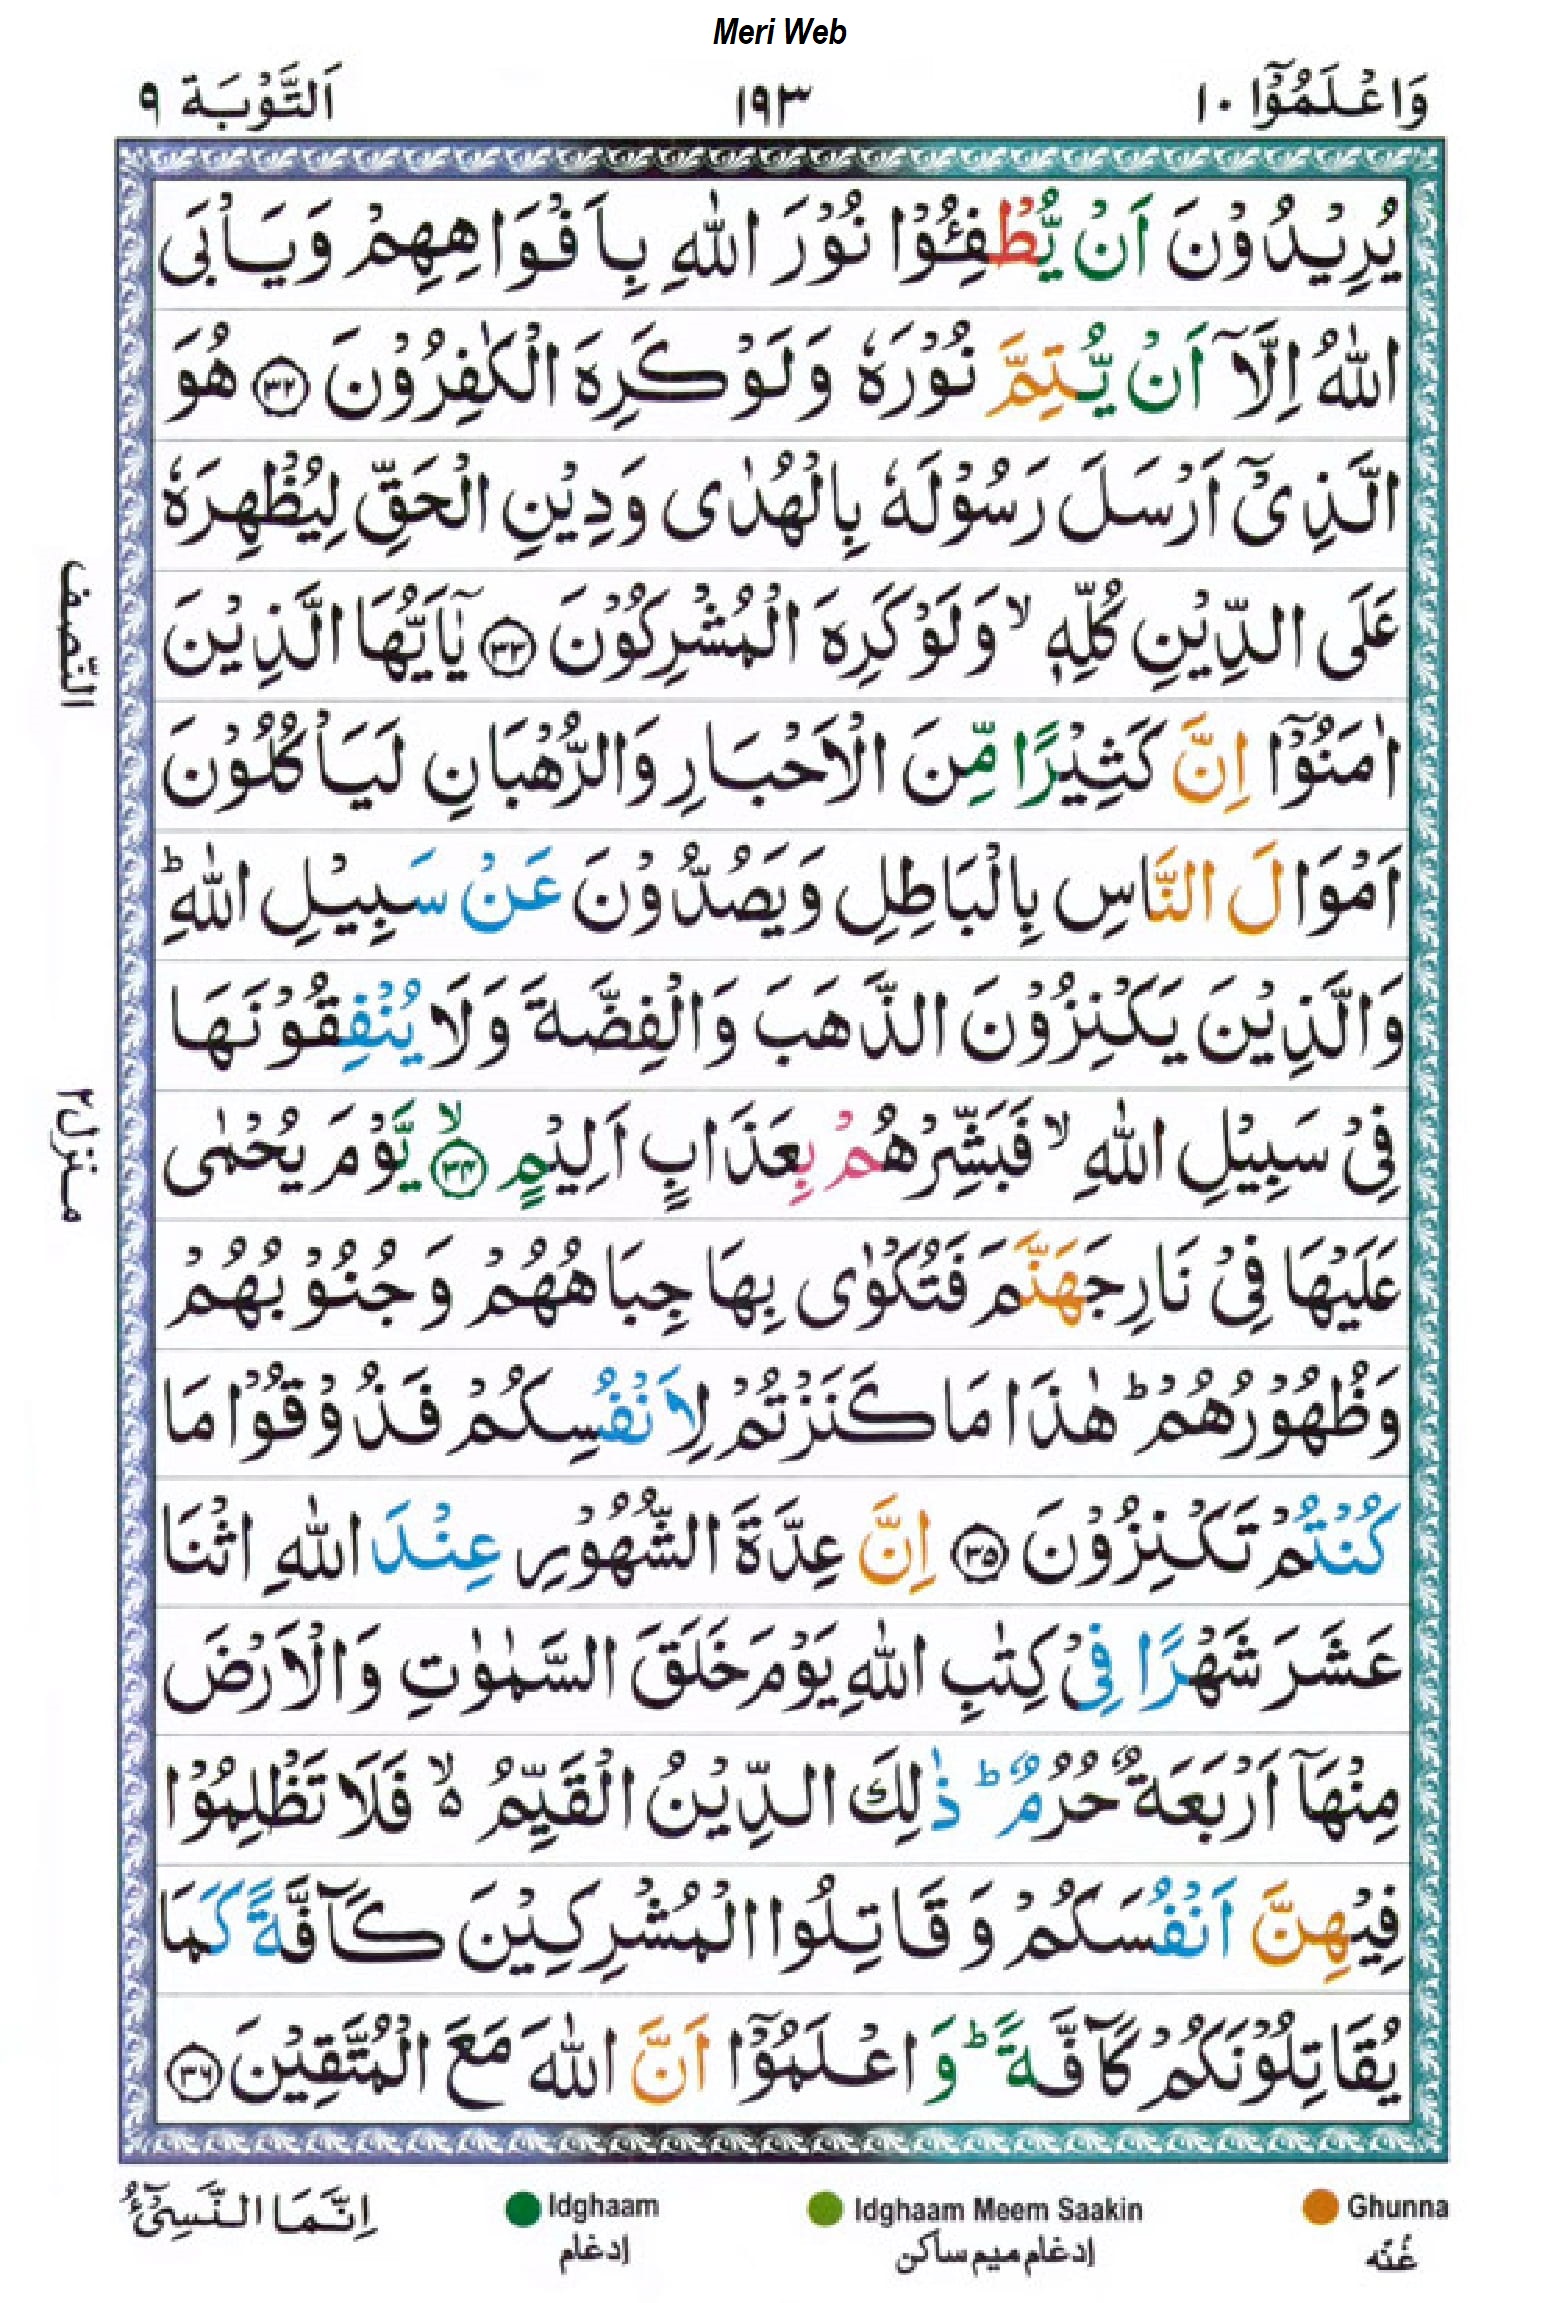 Meri Web
وَاعْلَمُوْٓا ١٠
١٩٣
اَلتَّوْبَة ٩
يُرِيْدُوْنَ اَنْ يُّطْفِئُوْا نُوْرَ اللّٰهِ بِاَفْوَاهِهِمْ وَيَاْبَى
اللّٰهُ اِلَّآ اَنْ يُّتِمَّ نُوْرَهٗ وَلَوْ كَرِهَ الْكٰفِرُوْنَ ٣٢ هُوَ
الَّذِيْٓ اَرْسَلَ رَسُوْلَهٗ بِالْهُدٰى وَدِيْنِ الْحَقِّ لِيُظْهِرَهٗ
عَلَى الدِّيْنِ كُلِّهٖ ۙ وَلَوْ كَرِهَ الْمُشْرِكُوْنَ ٣٣ يٰٓاَيُّهَا الَّذِيْنَ
اٰمَنُوْٓا اِنَّ كَثِيْرًا مِّنَ الْاَحْبَارِ وَالرُّهْبَانِ لَيَاْكُلُوْنَ
اَمْوَالَ النَّاسِ بِالْبَاطِلِ وَيَصُدُّوْنَ عَنْ سَبِيْلِ اللّٰهِ ؕ
وَالَّذِيْنَ يَكْنِزُوْنَ الذَّهَبَ وَالْفِضَّةَ وَلَا يُنْفِقُوْنَهَا
فِيْ سَبِيْلِ اللّٰهِ ۙ فَبَشِّرْهُمْ بِعَذَابٍ اَلِيْمٍ ۙ ٣٤ يَّوْمَ يُحْمٰى
عَلَيْهَا فِيْ نَارِ جَهَنَّمَ فَتُكْوٰى بِهَا جِبَاهُهُمْ وَجُنُوْبُهُمْ
وَظُهُوْرُهُمْ ؕ هٰذَا مَا كَنَزْتُمْ لِاَنْفُسِكُمْ فَذُوْقُوْا مَا
كُنْتُمْ تَكْنِزُوْنَ ٣٥ اِنَّ عِدَّةَ الشُّهُوْرِ عِنْدَ اللّٰهِ اثْنَا
عَشَرَ شَهْرًا فِيْ كِتٰبِ اللّٰهِ يَوْمَ خَلَقَ السَّمٰوٰتِ وَالْاَرْضَ
مِنْهَآ اَرْبَعَةٌ حُرُمٌ ؕ ذٰلِكَ الدِّيْنُ الْقَيِّمُ ۙ٥ فَلَا تَظْلِمُوْا
فِيْهِنَّ اَنْفُسَكُمْ وَقَاتِلُوا الْمُشْرِكِيْنَ كَآفَّةً كَمَا
يُقَاتِلُوْنَكُمْ كَآفَّةً ؕ وَاعْلَمُوْٓا اَنَّ اللّٰهَ مَعَ الْمُتَّقِيْنَ ٣٦
النّصف
منزل ٢
Ghunna
غُنّه
Idghaam Meem Saakin
إدغام ميم ساكن
Idghaam
إدغام
اِنَّمَا النَّسِيْٓءُ